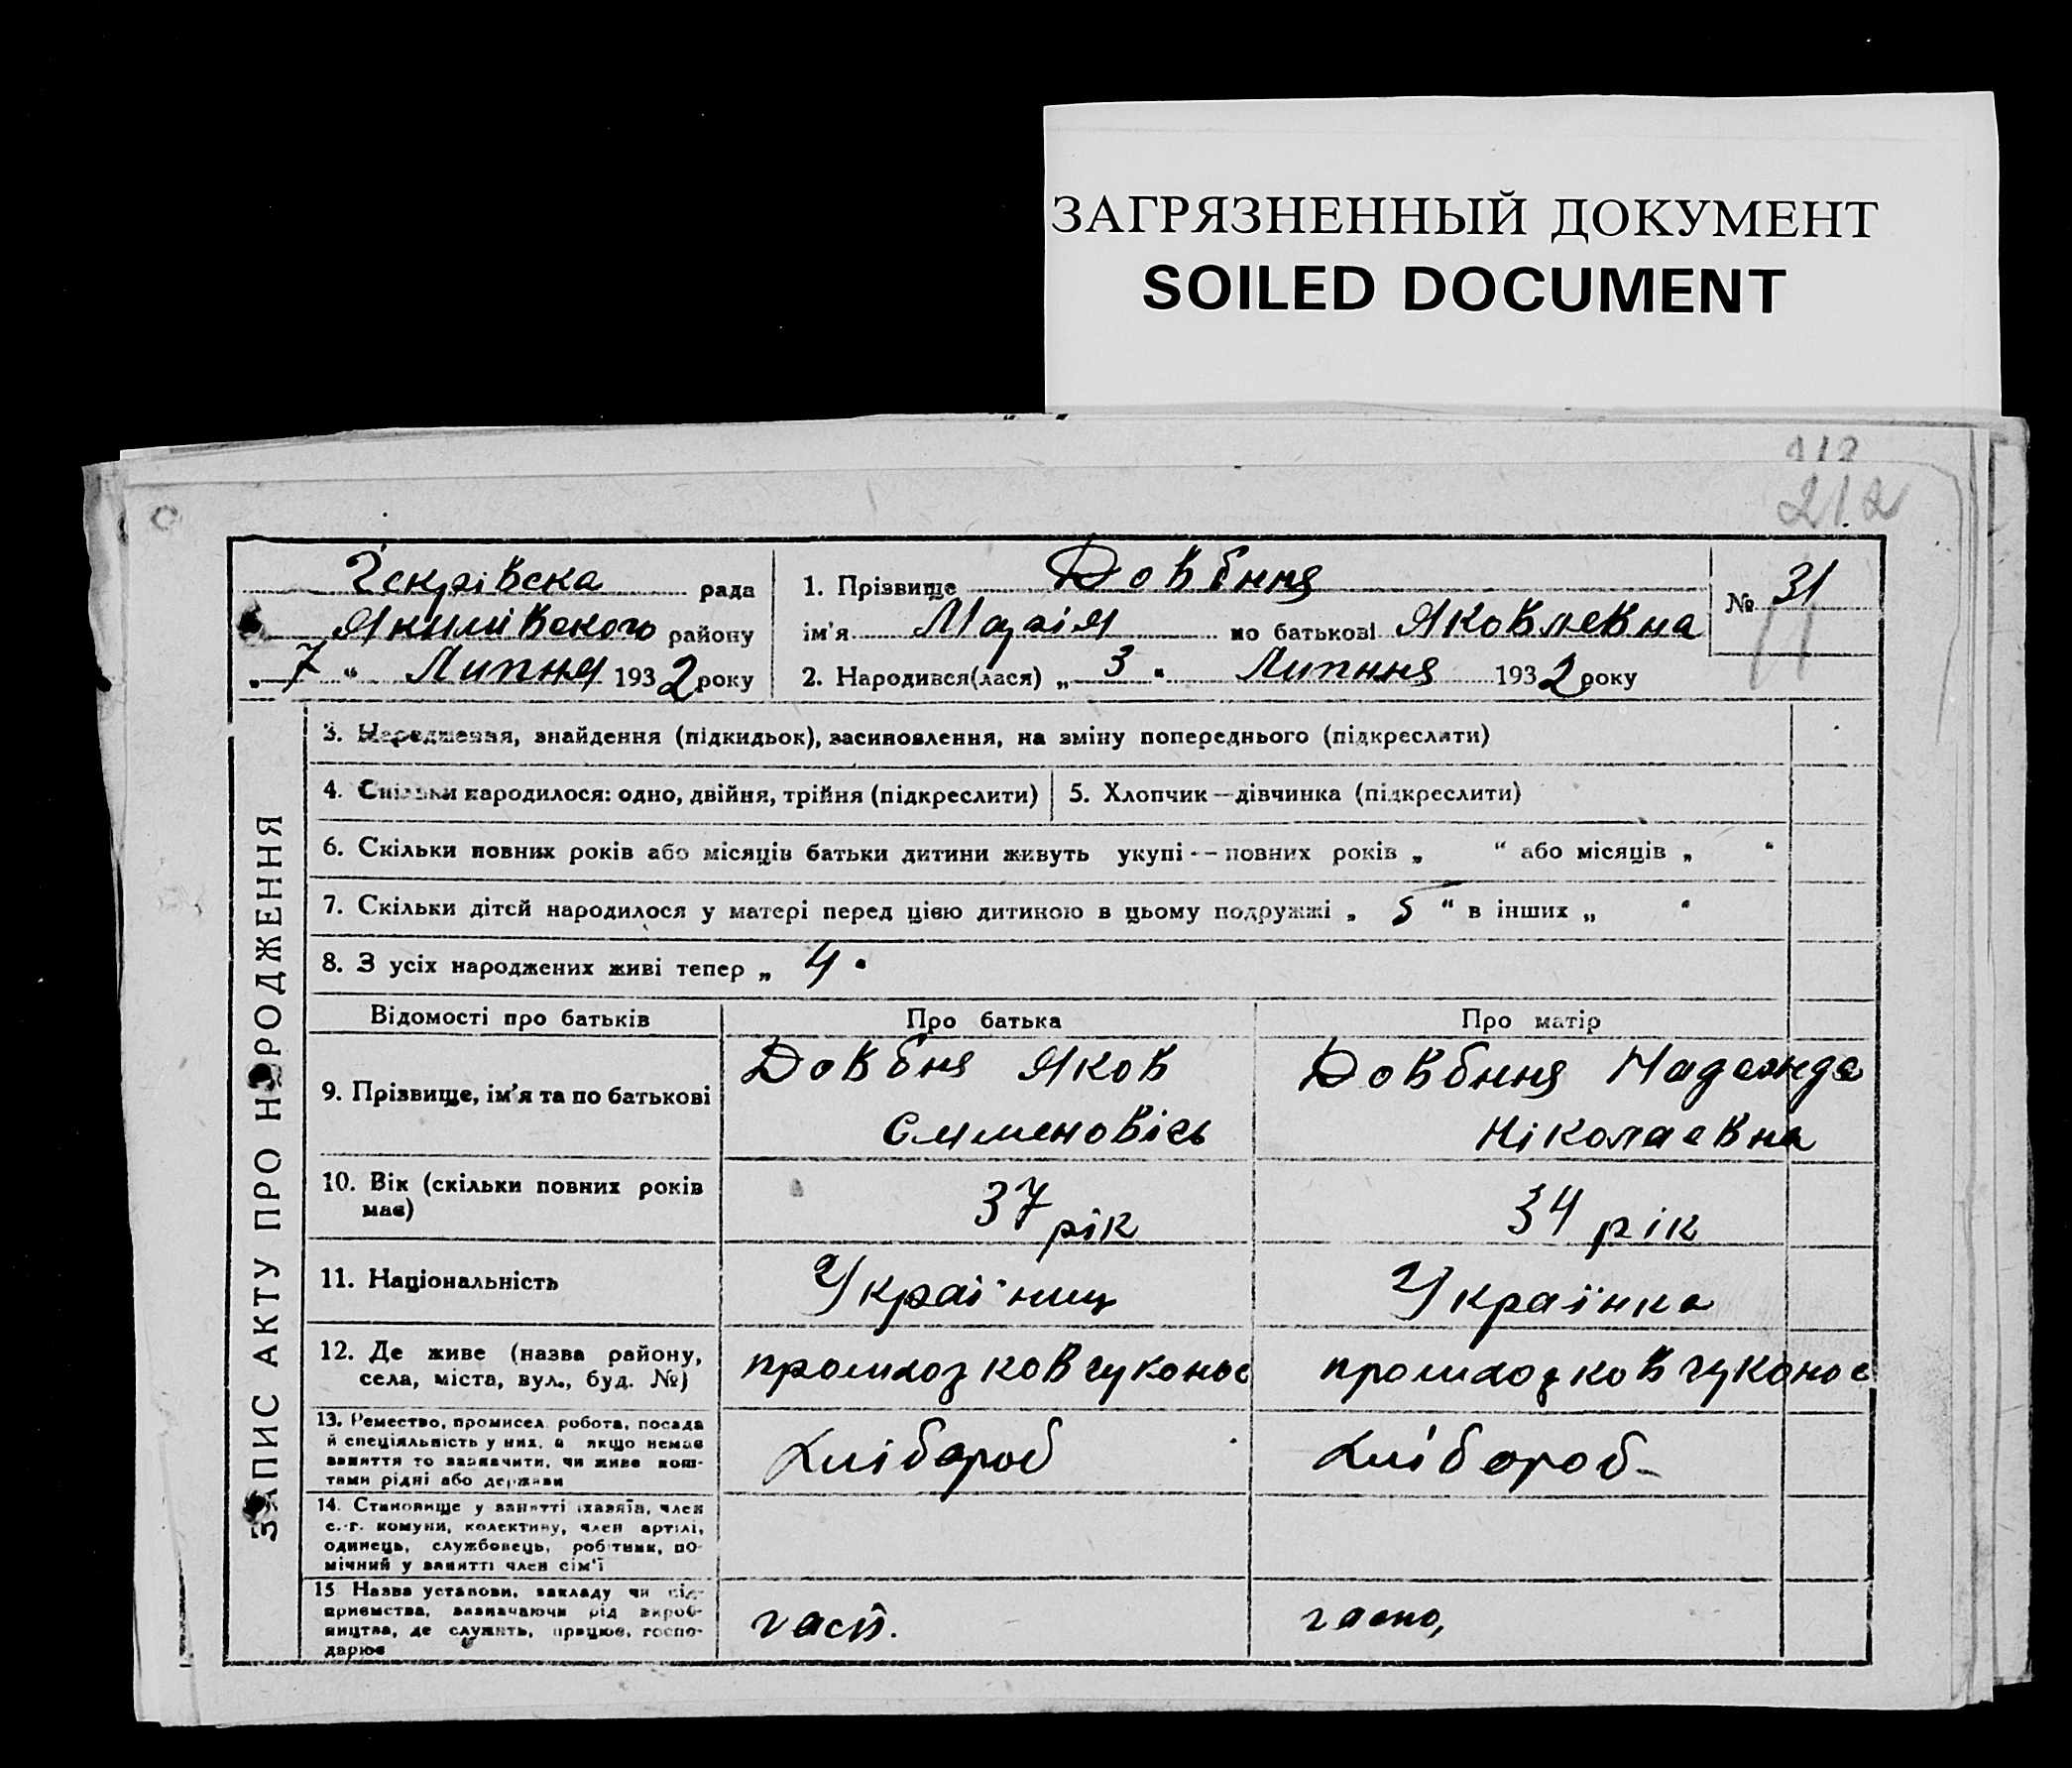 ЗАГРЯЗНЕННЫЙ ДОКУМЕНТ
SOILED DOCUMENT
212
рада
1. Прізвище Довбння
№ 31
району
ім'я Марія по батькові Яковлевна
„ 7 “ Липня 1932 року
2. Народився(лася) „ 3 “ Липння 1932 року
ЗАПИС АКТУ ПРО НАРОДЖЕННЯ
3. Народження, знайдення (підкидьок), засиновлення, на зміну попереднього (підкреслити)
4. Скільки народилося: одно, двійня, трійня (підкреслити)
5. Хлопчик—дівчинка (підкреслити)
6. Скільки повних років або місяців батьки дитини живуть укупі—повних років „ “ або місяців „ “
7. Скільки дітей народилося у матері перед цією дитиною в цьому подружжі „ 5 “ в інших „ “
8. З усіх народжених живі тепер „ 4 “
Відомості про батьків
Про батька
Про матір
9. Прізвище, ім'я та по батькові
Довбня Яков
Довбння Надежда
Ніколаевна
10. Вік (скільки повних років
має)
37 рік
34 рік
11. Національність
Україниц
Українка
12. Де живе (назва району,
села, міста, вул., буд. №)
13. Ремество, промисел, робота, посада
й спеціяльність у них, а якщо немає
заняття то зазначити, чи живе кош-
тами рідні або держави
Хлібороб
Хлібороб
14. Становище у занятті (хазяїн, член
с.-г. комуни, колективу, член артілі,
одинець, службовець, робітник, по-
мічний у занятті член сім'ї
15. Назва установи, закладу чи під-
приємства, зазначаючи рід вироб-
ництва, де служить, працює, госпо-
дарює